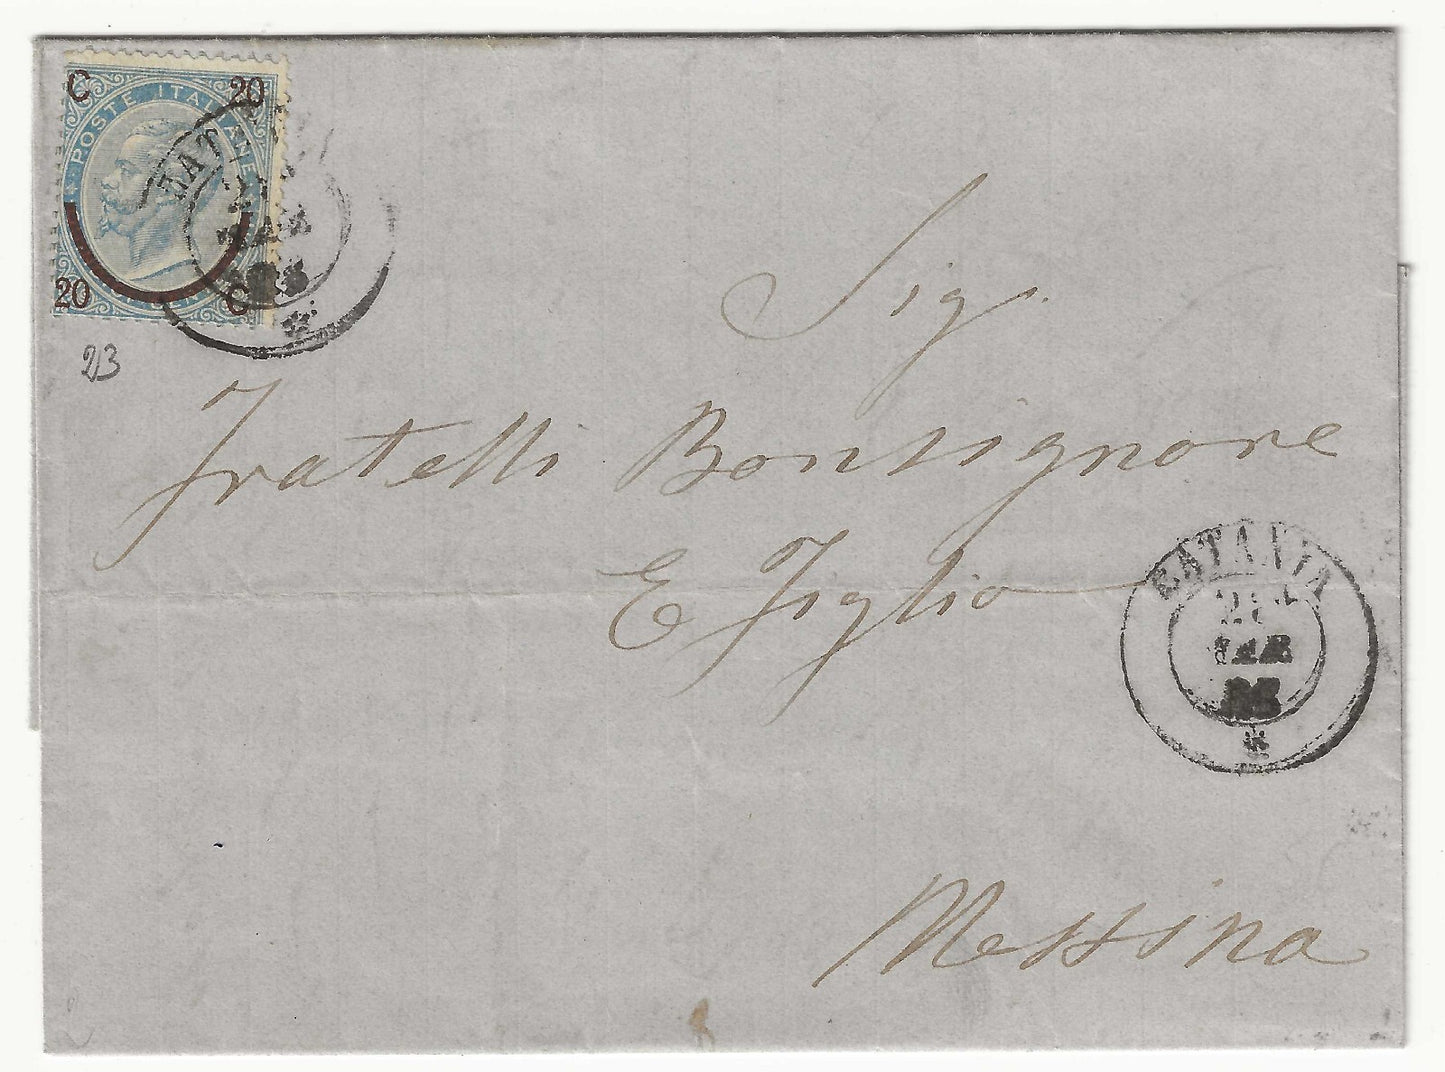 C 20
POSTE ITALIANE
20 C
23
Sig.
Fratelli Bonsignore
E Figlio
CATANIA
Messina